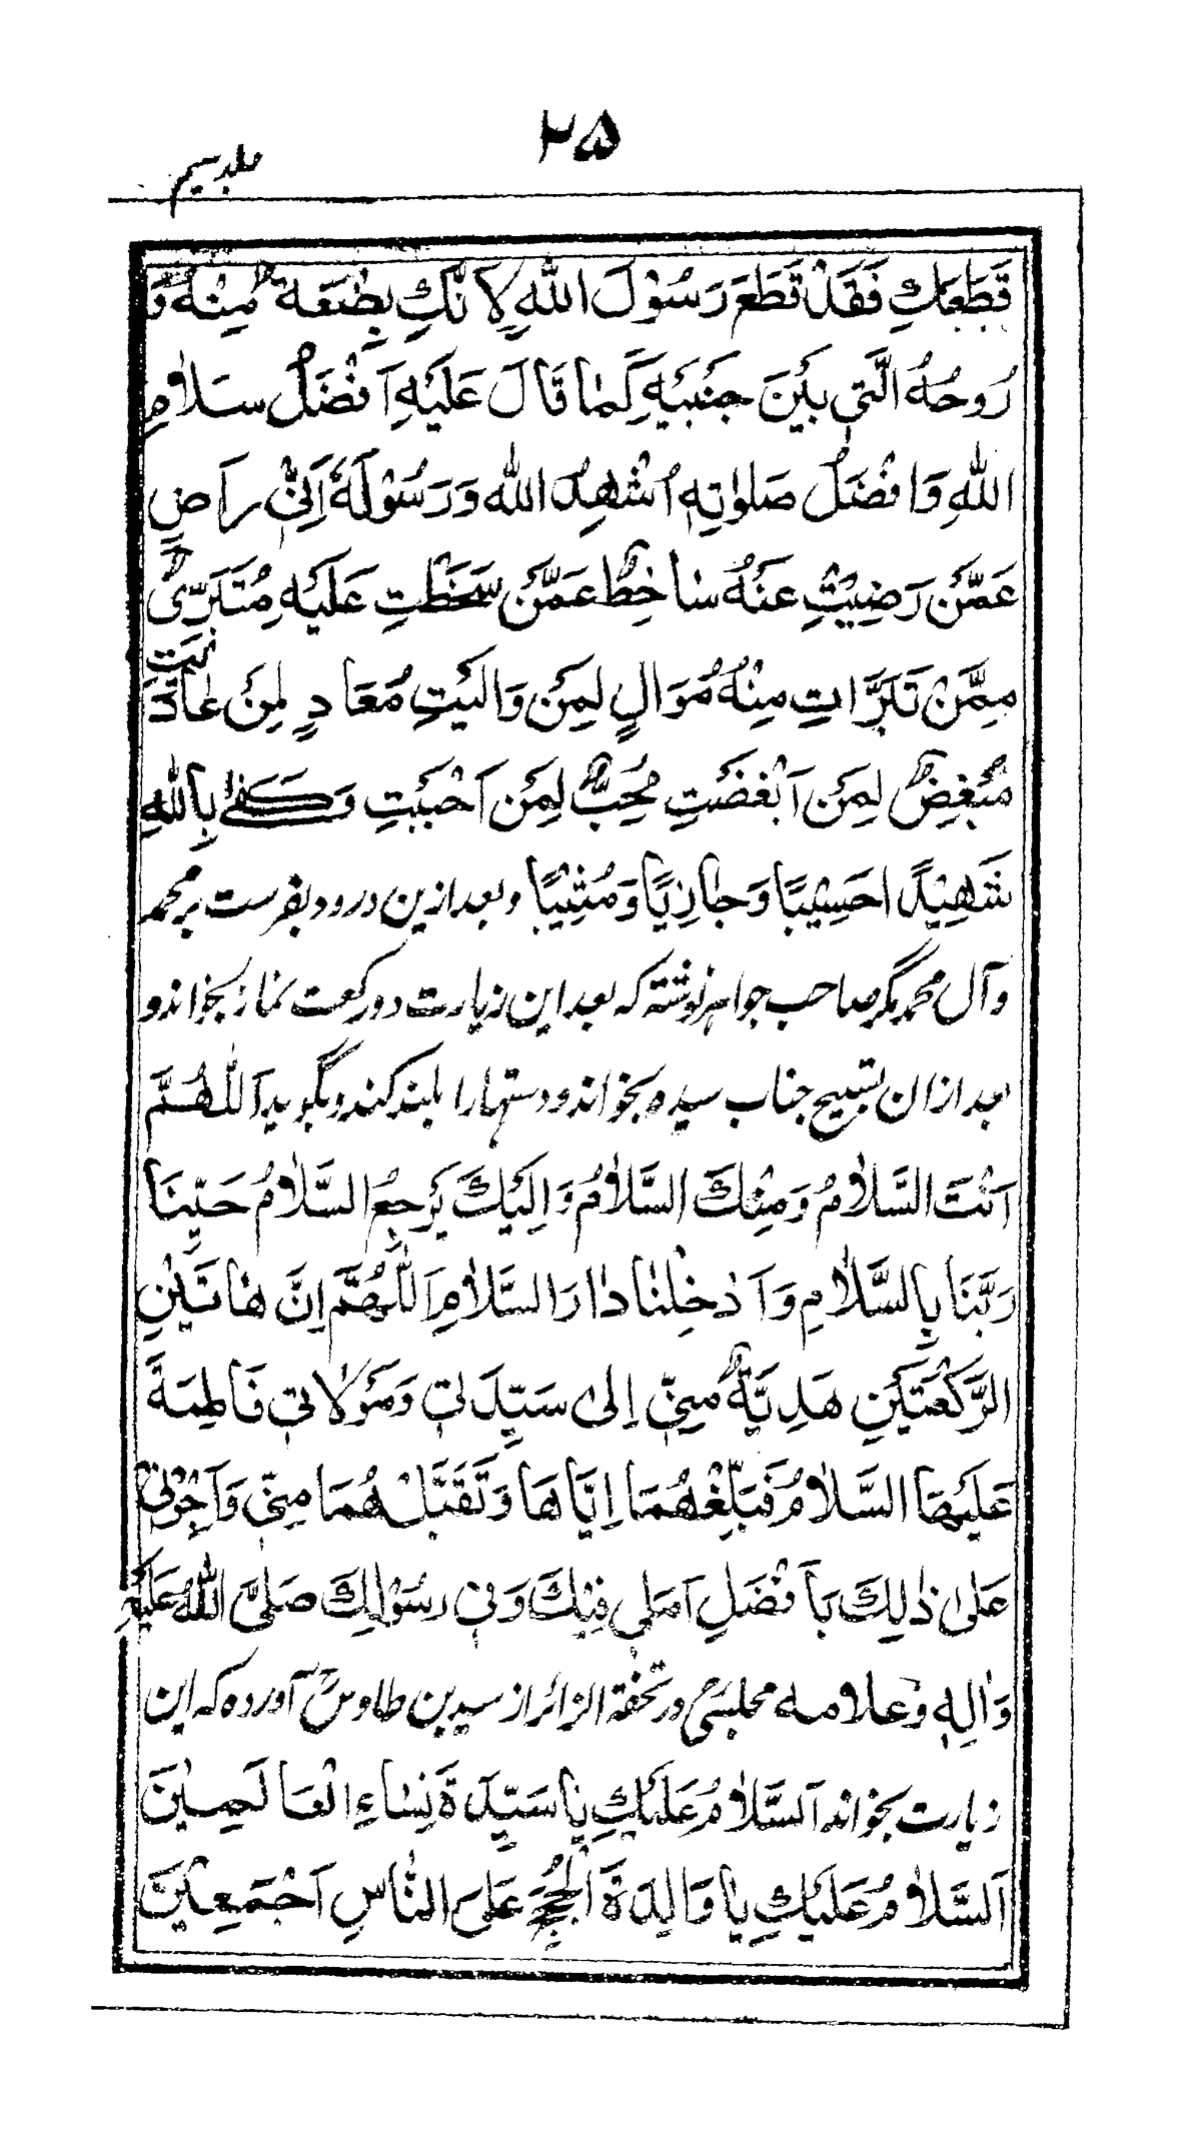 ۲۵
جلد سیم
قَطَعَكِ فَقَدْ قَطَعَ رَسُوْلَ اللهِ لِاَنَّكِ بِضْعَةٌ مِنْهُ وَ
رُوحُهُ الَّتِي بَيْنَ جَنْبَيْهِ كَمَا قَالَ عَلَيْهِ اَفْضَلُ سَلَامِ
اللهِ وَافْضَلُ صَلَوٰاتِهٖ اُشْهِدُ اللهَ وَرَسُوْلَهٗ اَنِّيْ رَاضٍ
عَمَّنْ رَضِيْتِ عَنْهُ سَاخِطٌ عَمَّنْ سَخَطْتِ عَلَيْهِ مُتَبَرِّئٌ
مِمَّنْ تَبَرَّاتِ مِنْهُ مُوَالٍ لِمَنْ وَالَيْتِ مُعَادٍ لِمَنْ عَادَيْتِ
مُبْغِضٌ لِمَنْ اَبْغَضْتِ مُحِبٌّ لِمَنْ اَحْبَبْتِ وَكَفىٰ بِاللهِ
شَهِيْدًا حَسِيْبًا وَجَازِيًا وَمُثِيْبًا وبعد ازین درود بفرست بر محمد
وآل محمد مگر صاحب جواهر نوشته که بعد این زیارت دو رکعت نماز بخواند و
بعد ازان تسبیح جناب سیده بخواند و دستها را بلند کند و بگوید اَللّٰهُمَّ
اَنْتَ السَّلَامُ وَمِنْكَ السَّلَامُ وَاِلَيْكَ يَرْجِعُ السَّلَامُ حَيِّنَا
رَبَّنَا بِالسَّلَامِ وَاَدْخِلْنَا دَارَ السَّلَامِ اَللّٰهُمَّ اِنَّ هَاتَيْنِ
الرَّكْعَتَيْنِ هَدِيَّةٌ مِنِّيْ اِلىٰ سَيِّدَتِيْ وَمَوْلَاتِيْ فَاطِمَةَ
عَلَيْهَا السَّلَامُ فَبَلِّغْهُمَا اِيَّاهَا وَتَقَبَّلْهُمَا مِنِّيْ وَآجِرْنِيْ
عَلىٰ ذٰلِكَ بِاَفْضَلِ اَمَلِي فِيْكَ وَفِيْ رَسُوْلِكَ صَلَّى اللهُ عَلَيْهِ
وَاٰلِهٖ وعلامه مجلسیؒ در تحفة الزائر از سید بن طاوسؒ آورده که این
زیارت بخواند اَلسَّلَامُ عَلَيْكِ يَا سَيِّدَةَ نِسَاءِ الْعَالَمِيْنَ
اَلسَّلَامُ عَلَيْكِ يَا وَالِدَةَ الْحُجَجِ عَلَى النَّاسِ اَجْمَعِيْنَ